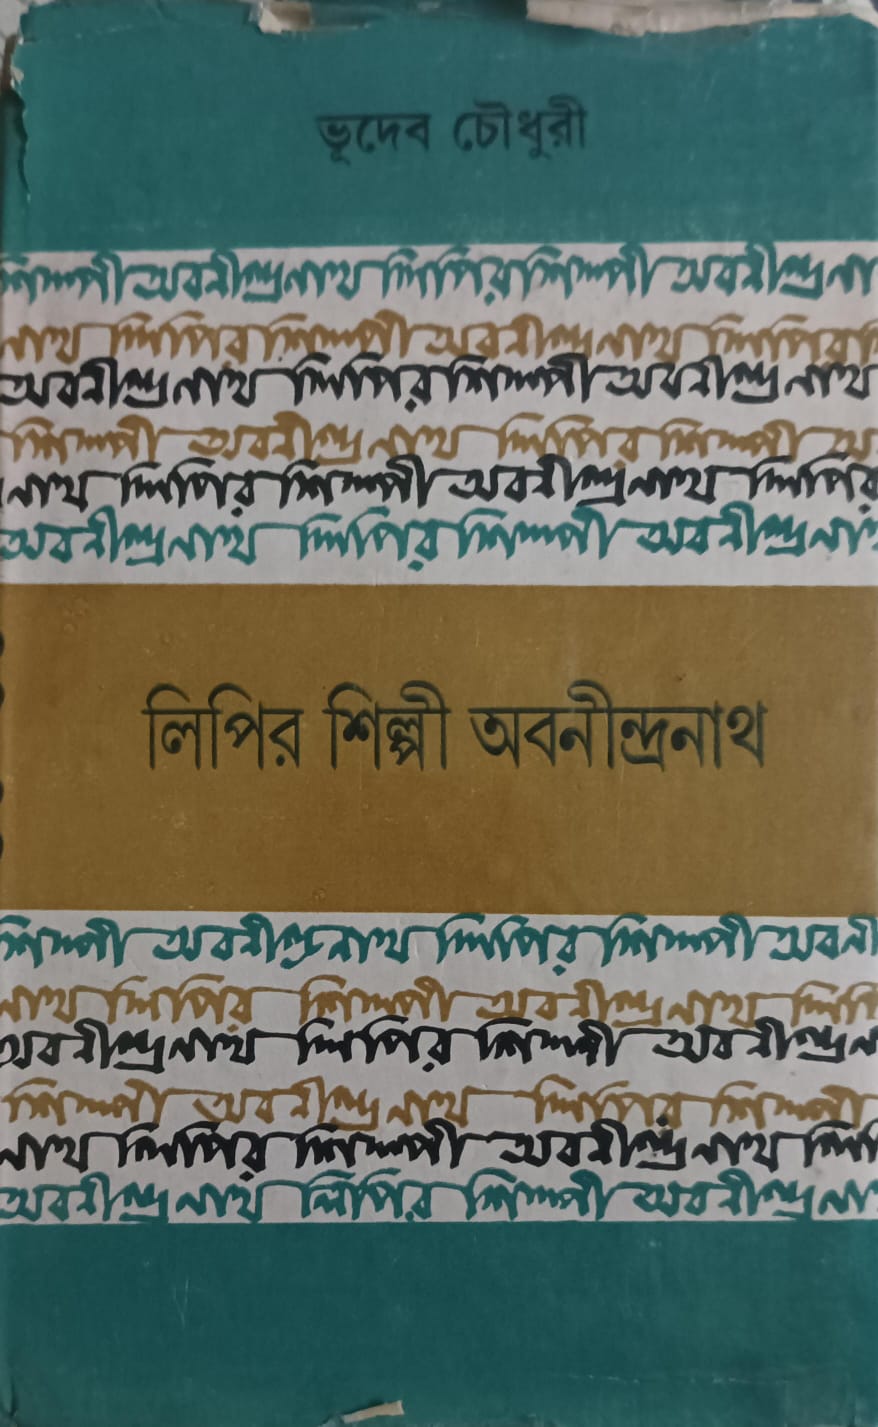 ভূদেব চৌধুরী
শিল্পী অবনীন্দ্রনাথ লিপির শিল্পী অবনীন্দ্রনা
নাথ লিপির শিল্পী অবনীন্দ্রনাথ লিপির
অবনীন্দ্রনাথ লিপির শিল্পী অবনীন্দ্রনাথ
শিল্পী অবনীন্দ্রনাথ লিপির শিল্পী অ
নাথ লিপির শিল্পী অবনীন্দ্রনাথ লিপির
অবনীন্দ্রনাথ লিপির শিল্পী অবনীন্দ্রনা
লিপির শিল্পী অবনীন্দ্রনাথ
শিল্পী অবনীন্দ্রনাথ লিপির শিল্পী অবনী
নাথ লিপির শিল্পী অবনীন্দ্রনাথ লিপি
অবনীন্দ্রনাথ লিপির শিল্পী অবনীন্দ্রন
শিল্পী অবনীন্দ্রনাথ লিপির শিল্পী
নাথ লিপির শিল্পী অবনীন্দ্রনাথ লিপি
অবনীন্দ্রনাথ লিপির শিল্পী অবনীন্দ্রনা